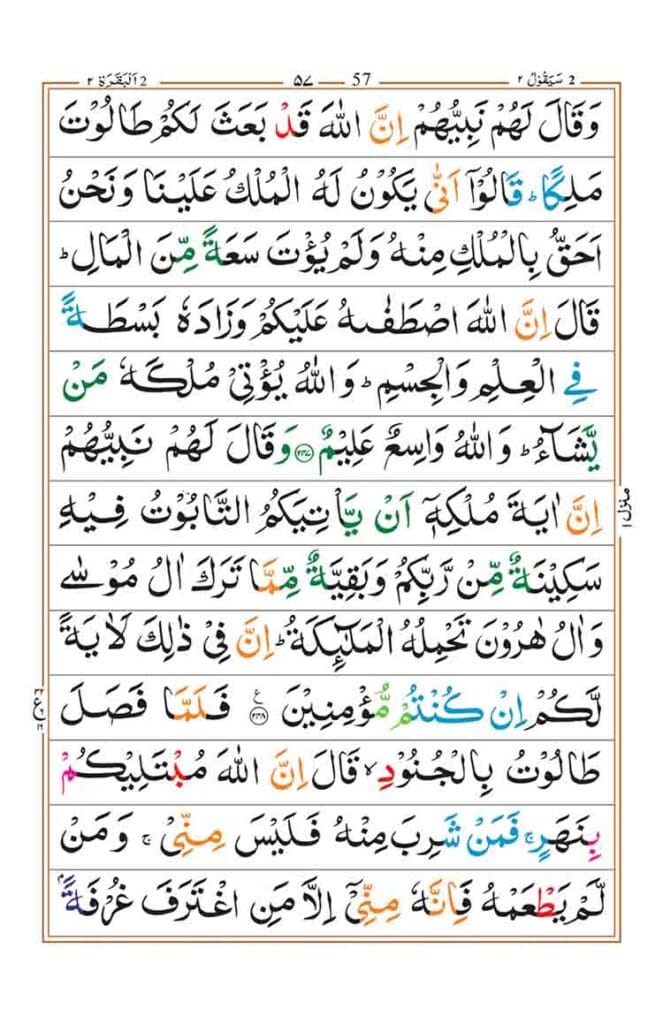 2 سَيَقُوۡلُ ٢ 57 ۵۷ 2 اَلۡبَقَرَة ٢
وَقَالَ لَهُمۡ نَبِيُّهُمۡ اِنَّ اللّٰهَ قَدۡ بَعَثَ لَـکُمۡ طَالُوۡتَ
مَلِكًا ؕ قَالُوۡٓا اَنّٰى يَكُوۡنُ لَهُ الۡمُلۡكُ عَلَيۡنَا وَنَحۡنُ
اَحَقُّ بِالۡمُلۡكِ مِنۡهُ وَلَمۡ يُؤۡتَ سَعَةً مِّنَ الۡمَالِ ؕ
قَالَ اِنَّ اللّٰهَ اصۡطَفٰٮهُ عَلَيۡکُمۡ وَزَادَهٗ بَسۡطَةً
فِي الۡعِلۡمِ وَالۡجِسۡمِ ؕ وَاللّٰهُ يُؤۡتِىۡ مُلۡکَهٗ مَنۡ
يَّشَآءُ ؕ وَاللّٰهُ وَاسِعٌ عَلِيۡمٌ ﴿۲۴۷﴾ وَقَالَ لَهُمۡ نَبِيُّهُمۡ
اِنَّ اٰيَةَ مُلۡکِهٖۤ اَنۡ يَّاۡتِيَکُمُ التَّابُوۡتُ فِيۡهِ
سَکِيۡنَةٌ مِّنۡ رَّبِّکُمۡ وَبَقِيَّةٌ مِّمَّا تَرَكَ اٰلُ مُوۡسٰى
وَاٰلُ هٰرُوۡنَ تَحۡمِلُهُ الۡمَلٰٓئِكَةُ ؕ اِنَّ فِىۡ ذٰلِكَ لَاٰيَةً
لَّـکُمۡ اِنۡ كُنۡتُمۡ مُّؤۡمِنِيۡنَ ﴿۲۴۸﴾ ع فَلَمَّا فَصَلَ
طَالُوۡتُ بِالۡجُـنُوۡدِ ۙ قَالَ اِنَّ اللّٰهَ مُبۡتَلِيۡکُمۡ
بِنَهَرٍ ۚ فَمَنۡ شَرِبَ مِنۡهُ فَلَيۡسَ مِنِّىۡ ۚ وَمَنۡ
لَّمۡ يَطۡعَمۡهُ فَاِنَّهٗ مِنِّىۡٓ اِلَّا مَنِ اغۡتَرَفَ غُرۡفَةًۢ
منزل ١